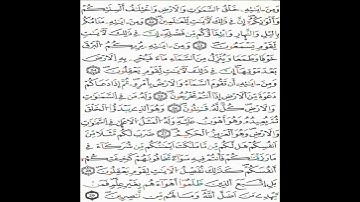 وَمِنْ ءَايَٰتِهِۦ خَلْقُ ٱلسَّمَٰوَٰتِ وَٱلْأَرْضِ وَٱخْتِلَٰفُ أَلْسِنَتِكُمْ
وَأَلْوَٰنِكُمْ إِنَّ فِى ذَٰلِكَ لَءَايَٰتٍ لِّلْعَٰلِمِينَ وَمِنْ ءَايَٰتِهِۦ مَنَامُكُم
بِٱلَّيْلِ وَٱلنَّهَارِ وَٱبْتِغَآؤُكُم مِّن فَضْلِهِۦٓ إِنَّ فِى ذَٰلِكَ لَءَايَٰتٍ
لِّقَوْمٍ يَسْمَعُونَ وَمِنْ ءَايَٰتِهِۦ يُرِيكُمُ ٱلْبَرْقَ
خَوْفًا وَطَمَعًا وَيُنَزِّلُ مِنَ ٱلسَّمَآءِ مَآءً فَيُحْىِۦ بِهِ ٱلْأَرْضَ
بَعْدَ مَوْتِهَآ إِنَّ فِى ذَٰلِكَ لَءَايَٰتٍ لِّقَوْمٍ يَعْقِلُونَ
وَمِنْ ءَايَٰتِهِۦٓ أَن تَقُومَ ٱلسَّمَآءُ وَٱلْأَرْضُ بِأَمْرِهِۦ ثُمَّ إِذَا دَعَاكُمْ
دَعْوَةً مِّنَ ٱلْأَرْضِ إِذَآ أَنتُمْ تَخْرُجُونَ وَلَهُۥ مَن فِى ٱلسَّمَٰوَٰتِ
وَٱلْأَرْضِ كُلٌّ لَّهُۥ قَٰنِتُونَ وَهُوَ ٱلَّذِى يَبْدَؤُا۟ ٱلْخَلْقَ
ثُمَّ يُعِيدُهُۥ وَهُوَ أَهْوَنُ عَلَيْهِ وَلَهُ ٱلْمَثَلُ ٱلْأَعْلَىٰ فِى ٱلسَّمَٰوَٰتِ
وَٱلْأَرْضِ وَهُوَ ٱلْعَزِيزُ ٱلْحَكِيمُ ضَرَبَ لَكُم مَّثَلًا مِّنْ
أَنفُسِكُمْ هَل لَّكُم مِّن مَّا مَلَكَتْ أَيْمَٰنُكُم مِّن شُرَكَآءَ فِى
مَا رَزَقْنَٰكُمْ فَأَنتُمْ فِيهِ سَوَآءٌ تَخَافُونَهُمْ كَخِيفَتِكُمْ
أَنفُسَكُمْ كَذَٰلِكَ نُفَصِّلُ ٱلْءَايَٰتِ لِقَوْمٍ يَعْقِلُونَ
بَلِ ٱتَّبَعَ ٱلَّذِينَ ظَلَمُوٓا۟ أَهْوَآءَهُم بِغَيْرِ عِلْمٍ فَمَن
يَهْدِى مَنْ أَضَلَّ ٱللَّهُ وَمَا لَهُم مِّن نَّٰصِرِينَ